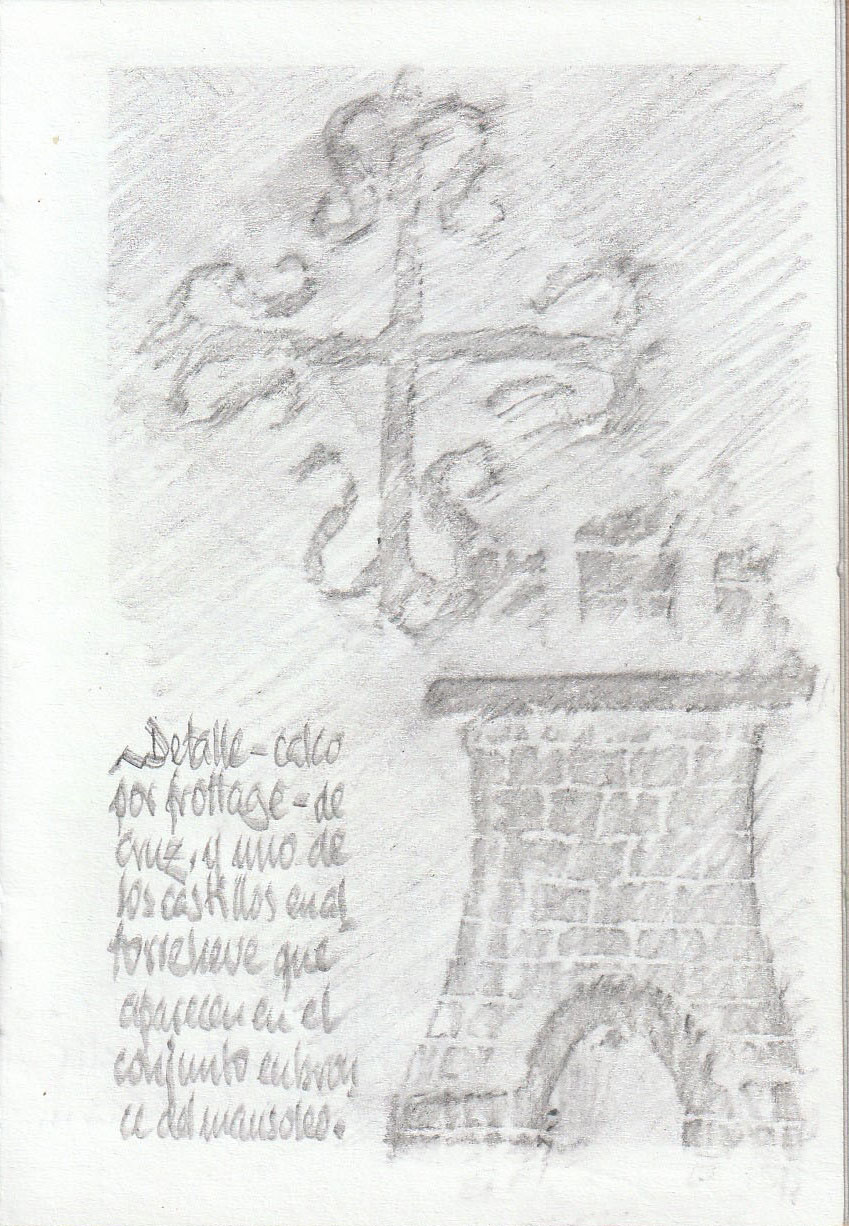 Detalle-calco
por frottage-de
cruz, y uno de
los castillos en al
torrelieve que
aparecen en el
conjunto en bron
ce del mausoleo.